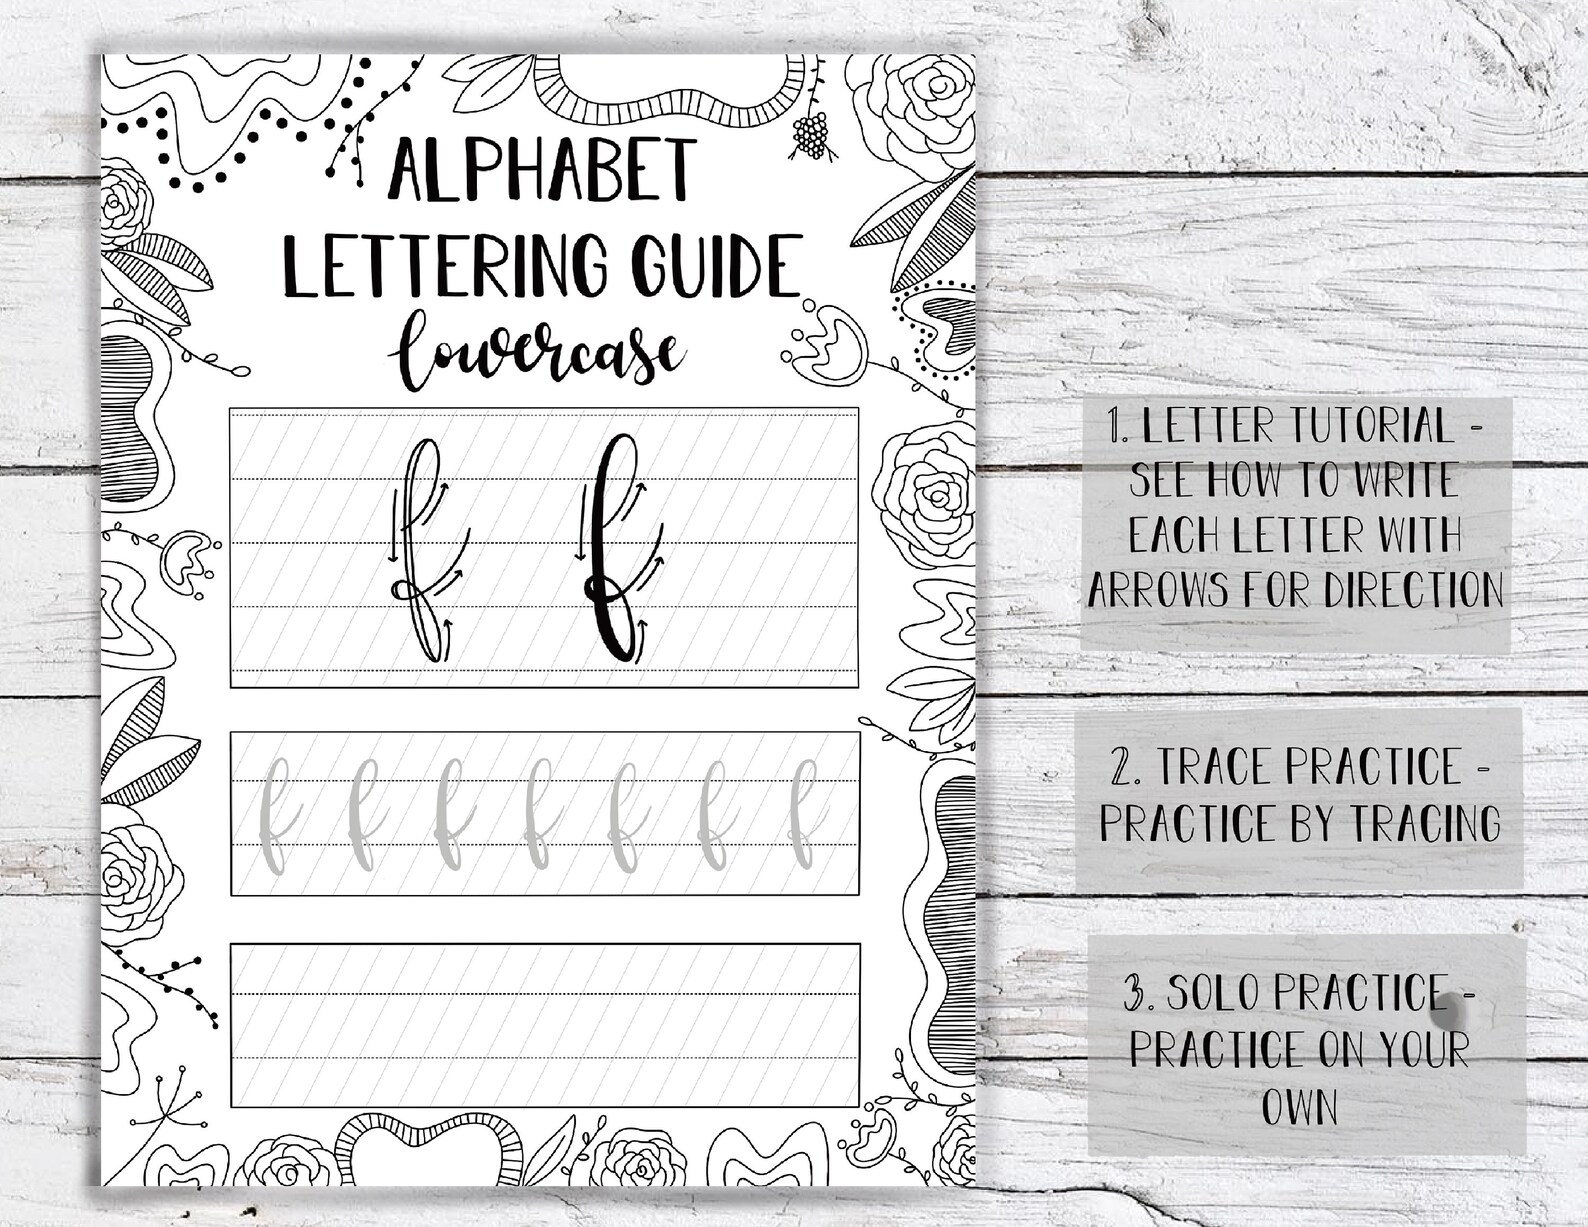 ALPHABET
LETTERING GUIDE
lowercase
f f
f f f f f f f
1. LETTER TUTORIAL -
SEE HOW TO WRITE
EACH LETTER WITH
ARROWS FOR DIRECTION
2. TRACE PRACTICE -
PRACTICE BY TRACING
3. SOLO PRACTICE -
PRACTICE ON YOUR
OWN